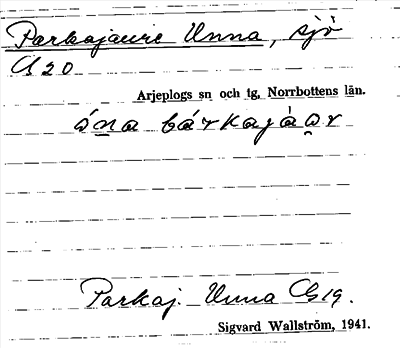 Parkajaure Unna, sjö
G20
Arjeplogs sn och tg, Norrbottens län.
ána bárkajàu̯r
Parkaj. Unna G19.
Sigvard Wallström, 1941.